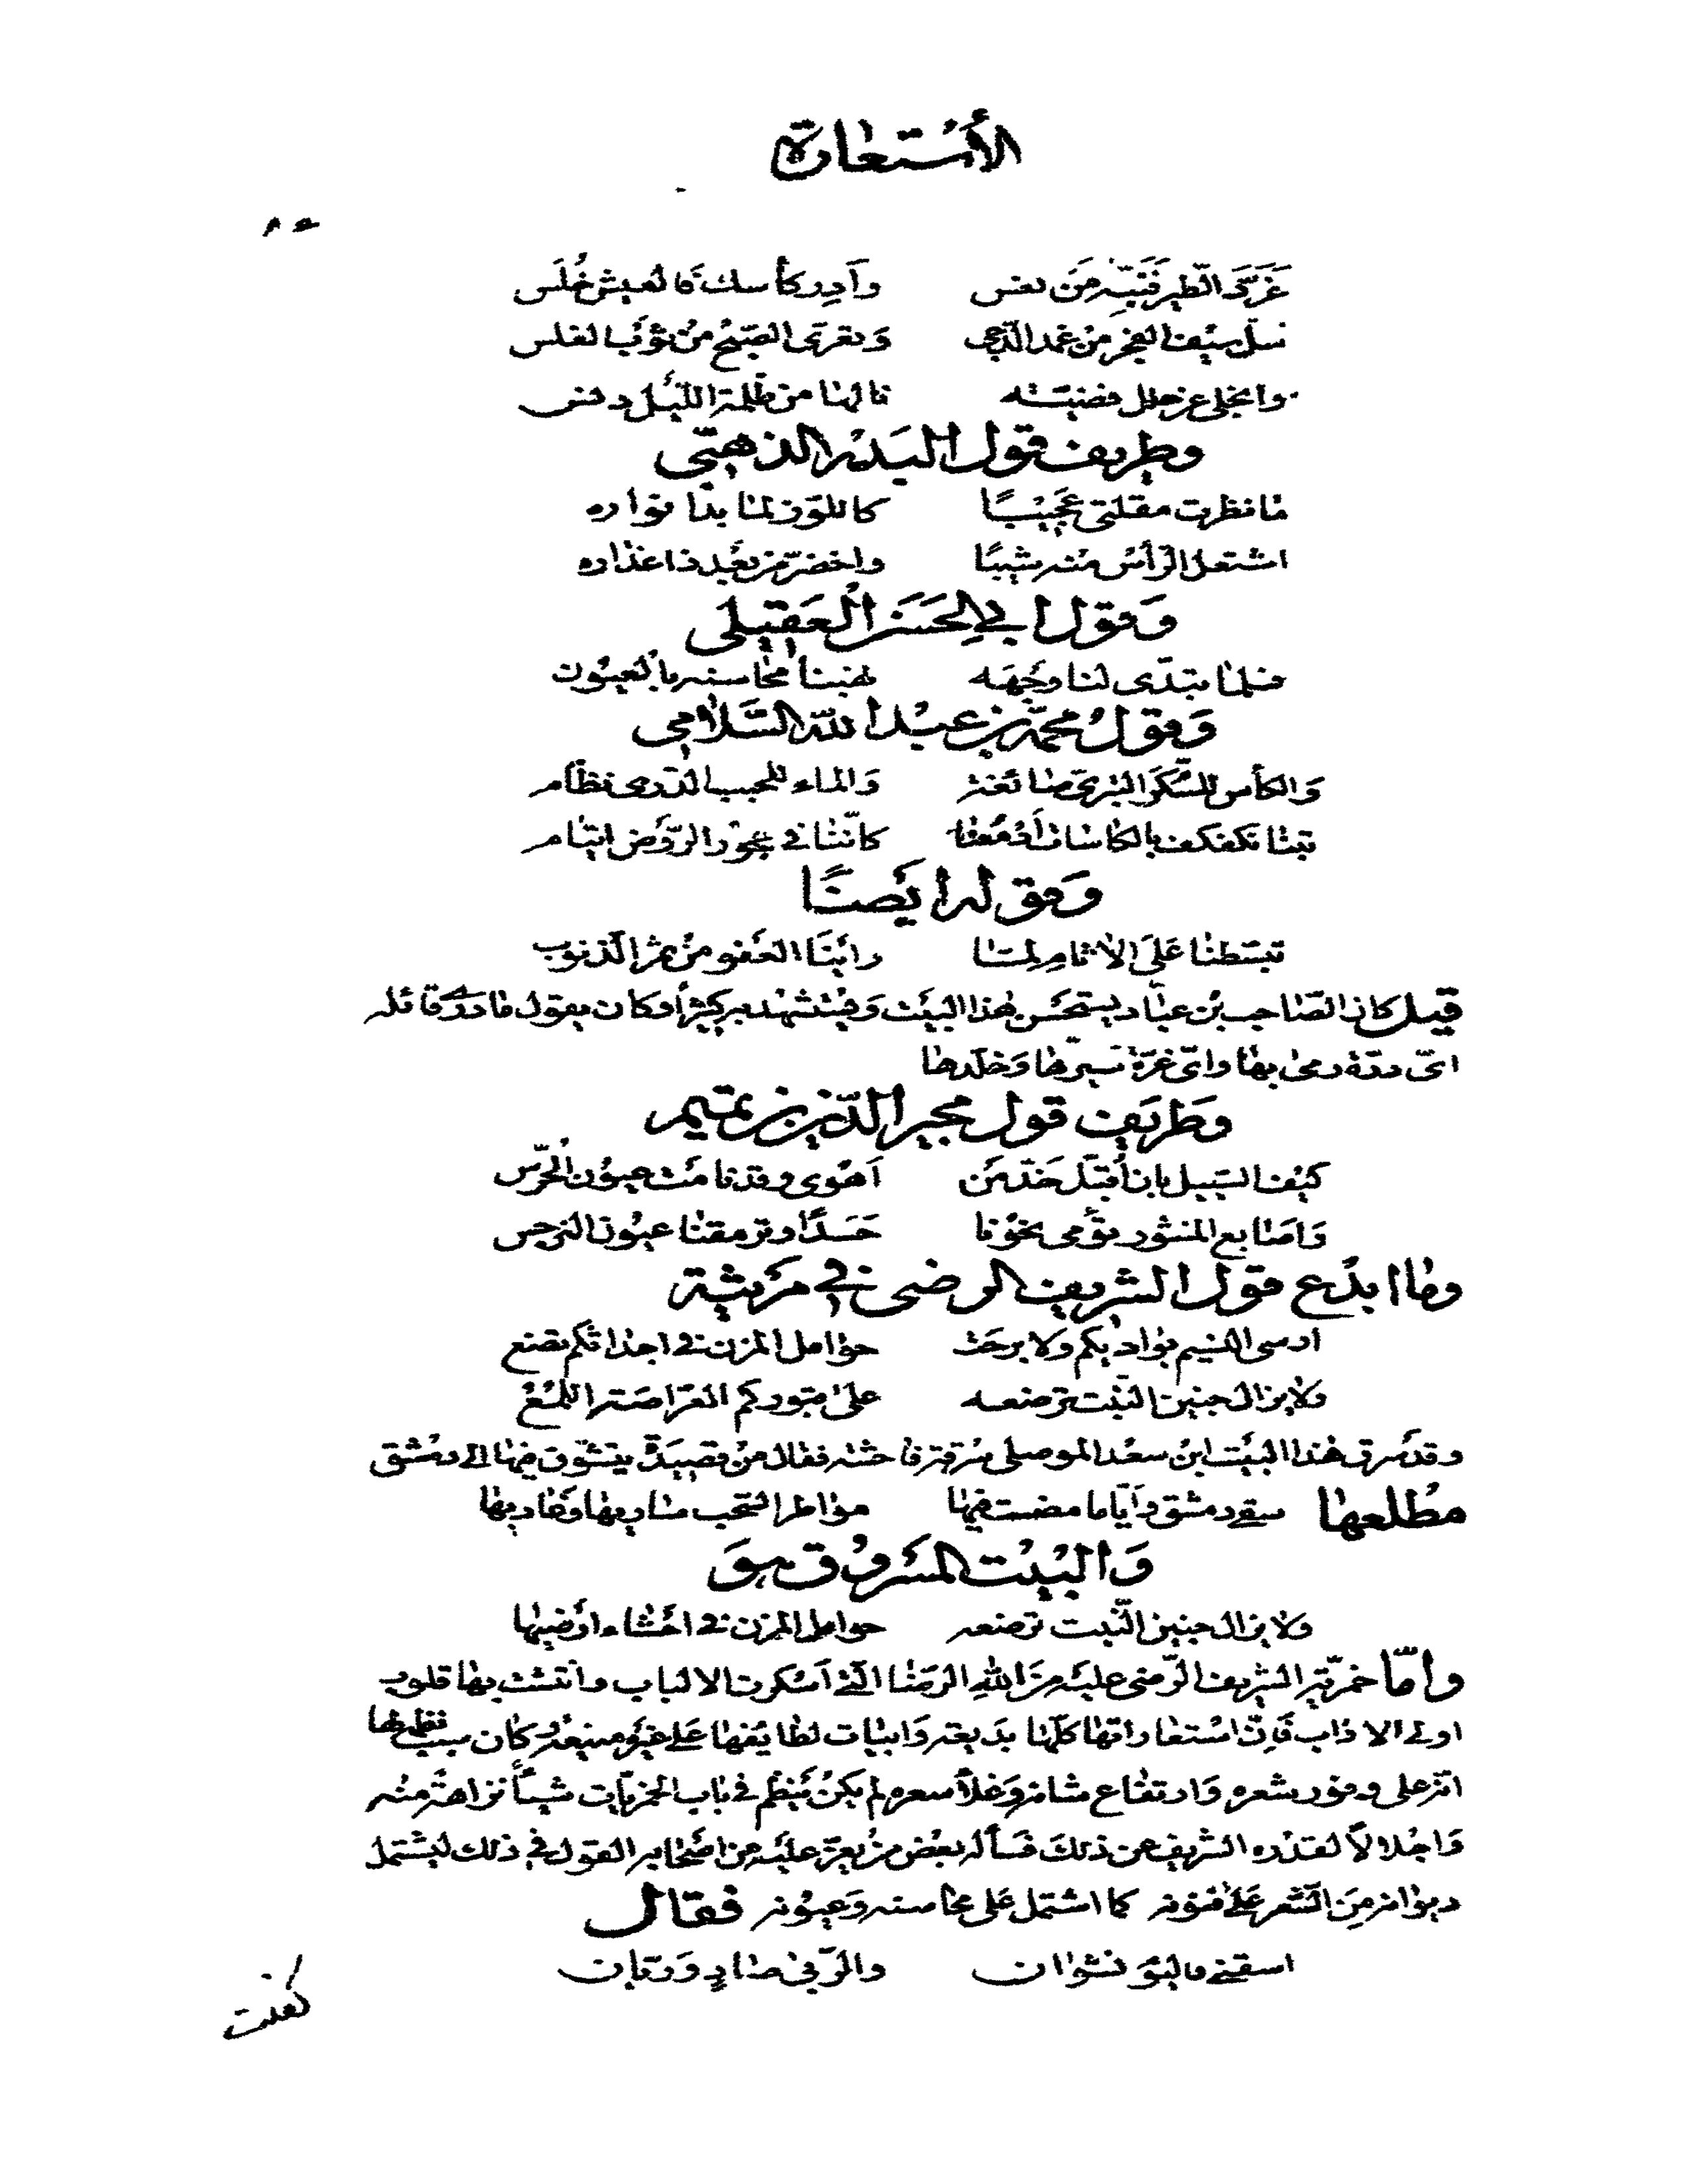 الأستعارة
غرّد الطير فنبّه من نعس وأدر كأسك فالعيش خلس
سلّ سيف الفجر من غمد الدجى وتعرّى الصبح من ثوب الغلس
وانجلى عن حلل فضيّته نالها من ظلمة الليل دنس
وظريف قول البدر الذهبي
ما نظرت مقلتي عجيبًا كاللوز لما بدا نواره
اشتعل الرأس منه شيبًا واخضرّ من بعد ذا عذاره
وقول أبي الحسن العقيلي
فلما تبدّى لنا وجهه نهبنا محاسنه بالعيون
وقول محمد بن عبد الله السّلامي
والكأس للسكر التبريّ صائغة والماء للحبب الدرى نظام
بتنا نكفكف بالكاسات أدمعنا كاننا في حجور الروض ايتام
وقوله ايضًا
تبسّطنا على الاثام لمّا رأينا العفو من ثمر الذنوب
قيل كان الصّاحب بن عباد يستحسن هذا البيت ويستشهد به كثيرًا وكان يقول ما درى قائله
اىّ درّة رمى بها واىّ غرّة سيّرها وخلّدها
وظريف قول مجير الدين بن تميم
كيف السبيل بان أقبّل خدّ من أهوى وقد نامت عيون الحرّس
واصابع المنثور تومى نحونا حسدًا وترمقنا عيون النرجس
وما ابدع قول الشريف الرضى في مرثية
ارسى النسيم بواديكم ولا برحت حوامل المزن في اجداثكم تضع
ولا يزال جنين النبت ترضعه على قبوركم العرّاصة اللمع
وقد سرق هذا البيت ابن سعد الموصلى سرقة فاحشة فقال من قصيدة يتشوّق فيها الى دمشق
مطلعها سقى دمشق وأيّاما مضت فيها مواطر السّحب ساريها وغاديها
والبيت المسروق هو
ولا يزال جنين النّبت ترضعه حوامل المزن في احشاء ارضيها
وامّا خمريّة الشريف الرّضى عليه من الله الرضا التي أسكرت الالباب وانتشت بها قلوب
اولى الاداب فانّ استعاراتها كلها بديعة وابيات لطايفها على غيره منيعة وكان سبب نظمها
انّه على وفور شعره وارتفاع شانه وغلاء سعره لم يكن ينظم في باب الخمريّات شيئًا نزاهة منه
واجلالاً لقدره الشريف عن ذلك فسأله بعض من يعزّ عليه من اصحابه القول في ذلك ليشتمل
ديوانه من الشعر على فنونه كما اشتمل على محاسنه وعيونه فقال
اسقني فاليوم نشوان والرّبى صادٍ وريّان